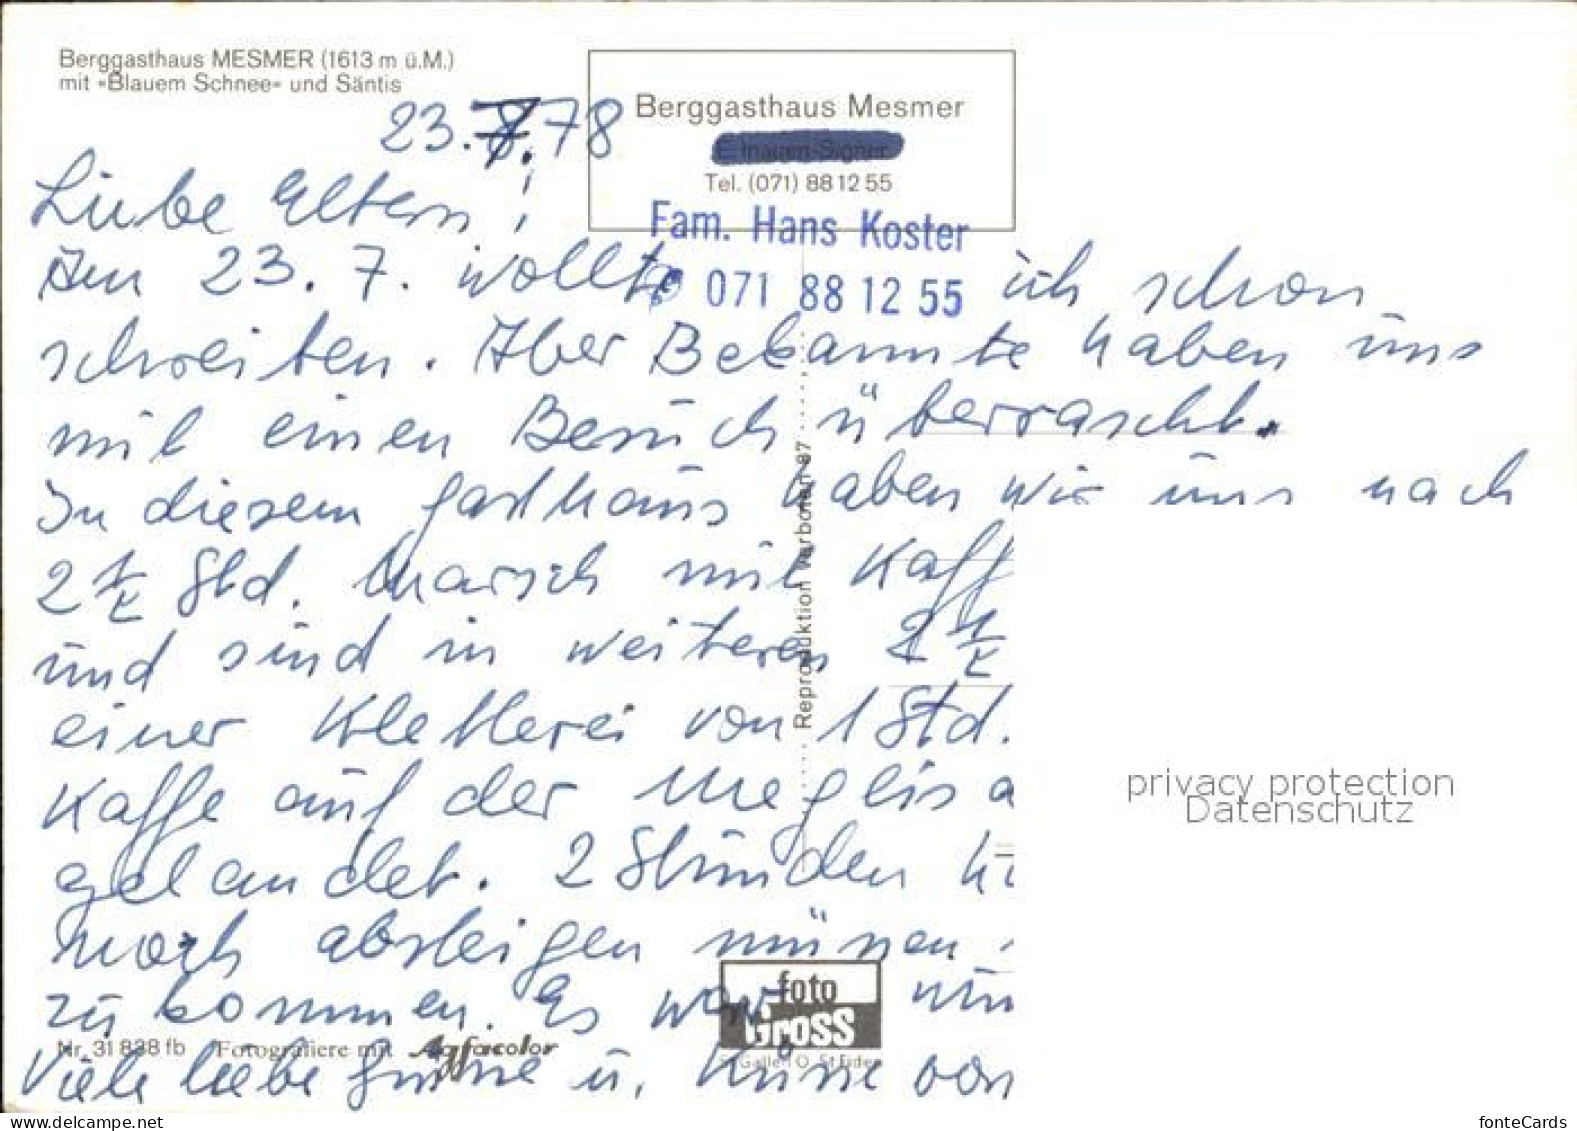 Berggasthaus MESMER (1613 m ü.M.)
mit «Blauem Schnee» und Säntis
Berggasthaus Mesmer
Tel. (071) 88 12 55
Fam. Hans Koster
071 88 12 55
23.7.78
Liebe Eltern!
Am 23. 7. wollte ich schon
schreiben. Aber Bekannte haben uns
mit einen Besuch überrascht.
In diesem Gasthaus haben wir uns nach
2 1/2 Std. Marsch mit Kaff
und sind in weiteren 2 1/2
einer Kletterei von 1 Std.
Kaffe auf der Meglisa
gelandet. 2 Stunden hi
noch absteigen müsen
zu kommen. Es war wun
Viele liebe Grüsse u. Küsse von
Reproduktion verboten 87
foto
Gross
St. Gallen O, St. Fiden
Nr. 31 838 fb Fotografiere mit Agfacolor
privacy protection
Datenschutz
www.delcampe.net
fonteCards